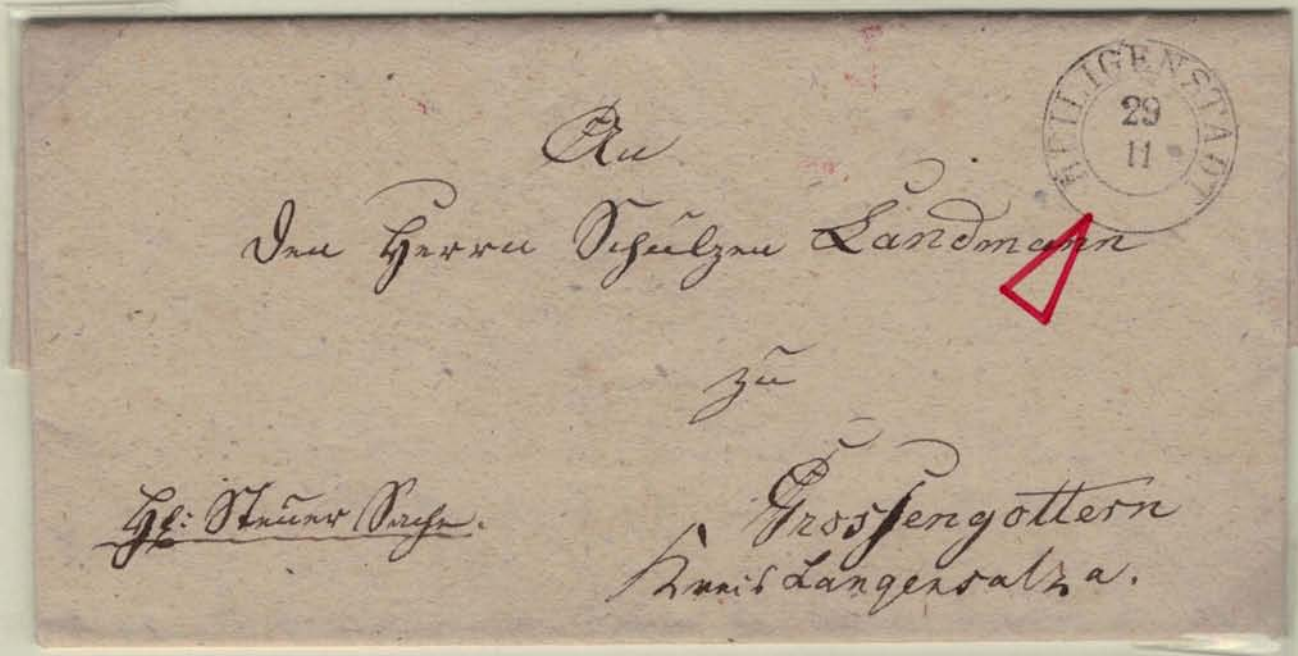 HEILIGENSTADT
29
11
An
den Herrn Schulzen Landmann
zu
Grossengottern
Kreis Langensalza.
Steuer Sache.